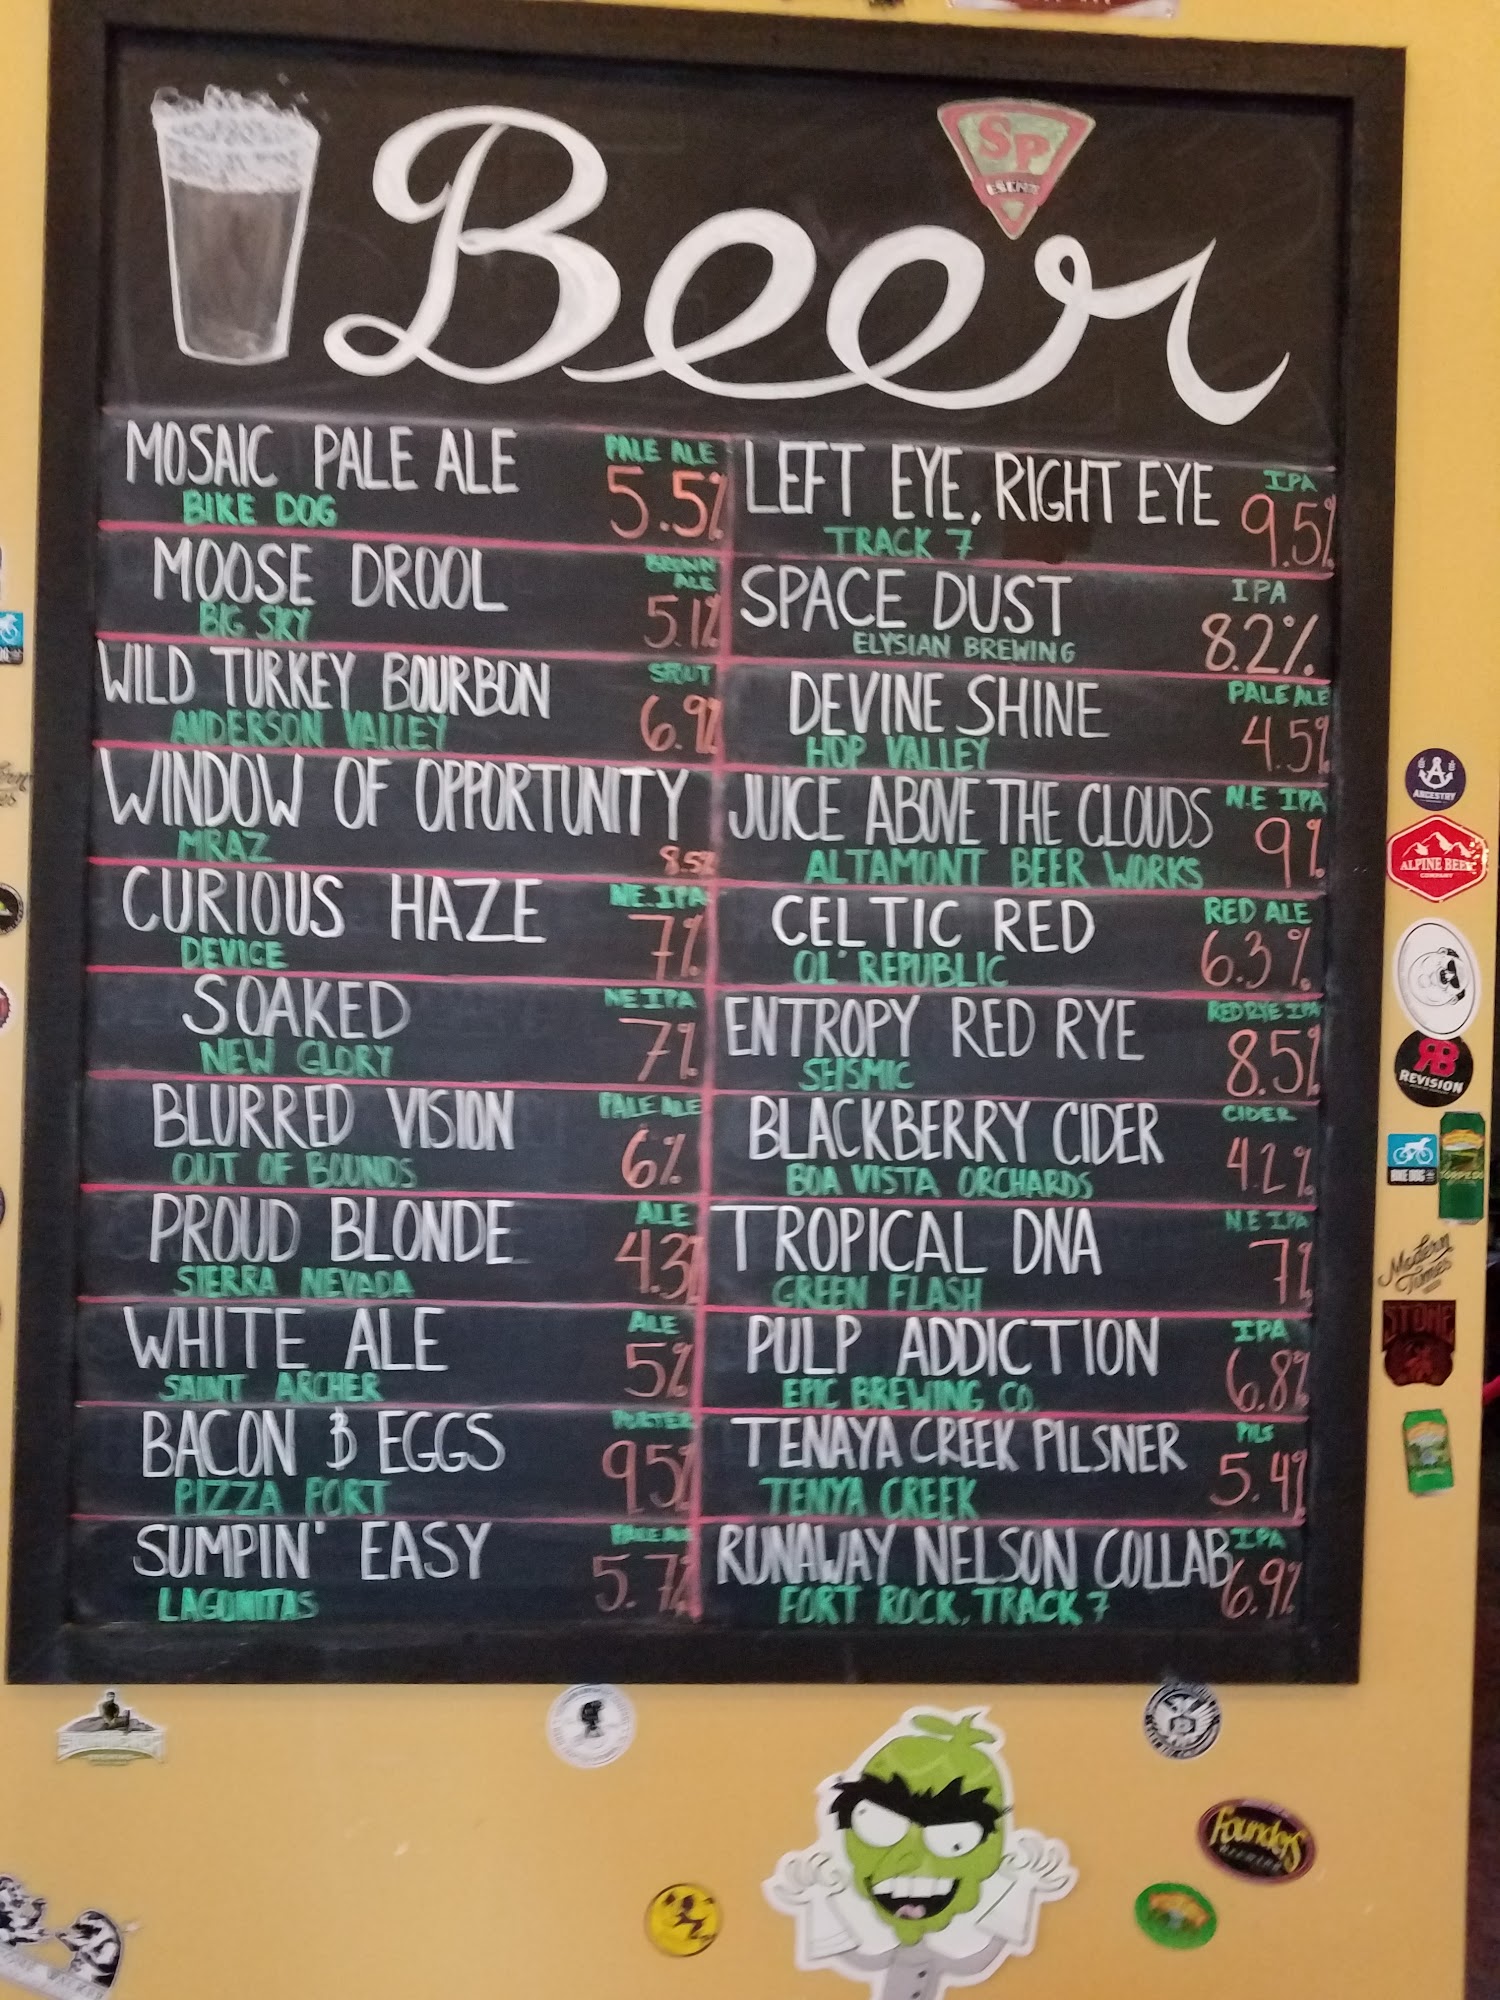 Beer
SP
MOSAIC PALE ALE
PALE ALE
BIKE DOG
5.5%
MOOSE DROOL
BROWN
ALE
BIG SKY
5.1%
WILD TURKEY BOURBON
STOUT
ANDERSON VALLEY
6.9%
WINDOW OF OPPORTUNITY
MRAZ
8.5%
CURIOUS HAZE
NE.IPA
DEVICE
7%
SOAKED
NE IPA
NEW GLORY
7%
BLURRED VISION
PALE ALE
OUT OF BOUNDS
6%
PROUD BLONDE
ALE
SIERRA NEVADA
4.3%
WHITE ALE
ALE
SAINT ARCHER
5%
BACON & EGGS
PORTER
PIZZA PORT
95%
SUMPIN' EASY
PALE ALE
LAGUNITAS
5.7%
LEFT EYE, RIGHT EYE
IPA
TRACK 7
9.5%
SPACE DUST
IPA
ELYSIAN BREWING
8.2%
DEVINE SHINE
PALE ALE
HOP VALLEY
4.5%
JUICE ABOVE THE CLOUDS
N.E IPA
ALTAMONT BEER WORKS
9%
CELTIC RED
RED ALE
OL' REPUBLIC
6.3%
ENTROPY RED RYE
RED RYE IPA
SEISMIC
8.5%
BLACKBERRY CIDER
CIDER
BOA VISTA ORCHARDS
4.2%
TROPICAL DNA
N.E IPA
GREEN FLASH
7%
PULP ADDICTION
IPA
EPIC BREWING CO.
6.8%
TENAYA CREEK PILSNER
PILS
TENYA CREEK
5.4%
RUNAWAY NELSON COLLAB
IPA
FORT ROCK, TRACK 7
6.9%
ANCESTRY
ALPINE BEER
COMPANY
RB
REVISION
BIKE DOG
TORPEDO
Modern
Times
STONE
Founders
BREWING